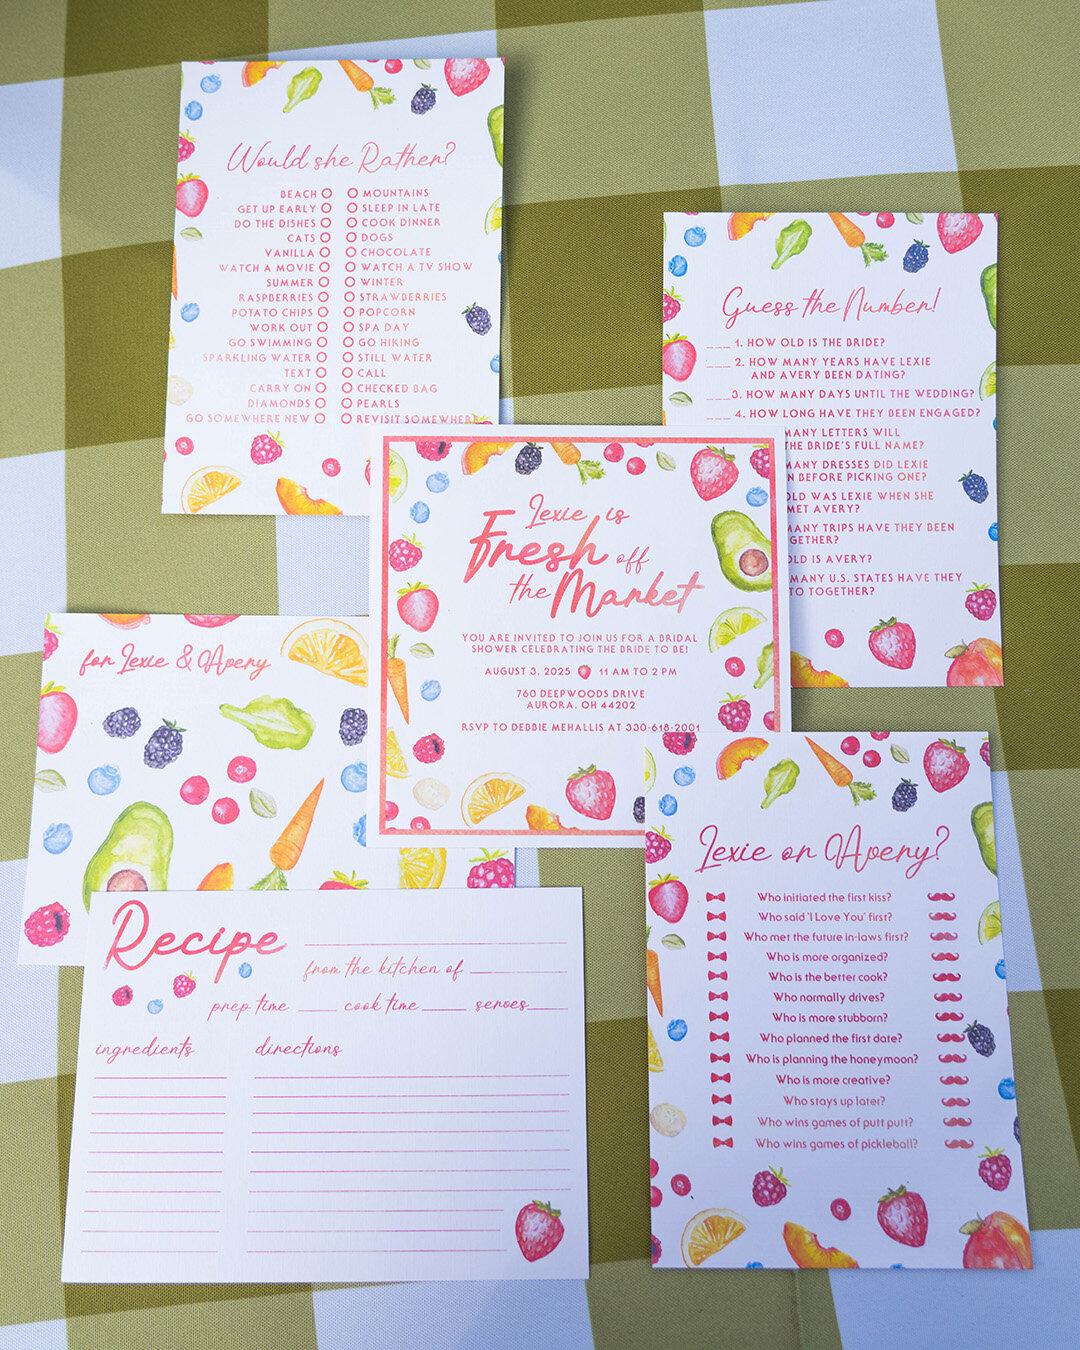 Would she Rather?
BEACH MOUNTAINS
GET UP EARLY SLEEP IN LATE
DO THE DISHES COOK DINNER
CATS DOGS
VANILLA CHOCOLATE
WATCH A MOVIE WATCH A TV SHOW
SUMMER WINTER
RASPBERRIES STRAWBERRIES
POTATO CHIPS POPCORN
WORK OUT SPA DAY
GO SWIMMING GO HIKING
SPARKLING WATER STILL WATER
TEXT CALL
CARRY ON CHECKED BAG
DIAMONDS PEARLS
GO SOMEWHERE NEW REVISIT SOMEWHERE
Guess the Number!
___ 1. HOW OLD IS THE BRIDE?
___ 2. HOW MANY YEARS HAVE LEXIE
AND AVERY BEEN DATING?
___ 3. HOW MANY DAYS UNTIL THE WEDDING?
___ 4. HOW LONG HAVE THEY BEEN ENGAGED?
MANY LETTERS WILL
THE BRIDE'S FULL NAME?
MANY DRESSES DID LEXIE
N BEFORE PICKING ONE?
OLD WAS LEXIE WHEN SHE
MET AVERY?
MANY TRIPS HAVE THEY BEEN
GETHER?
OLD IS AVERY?
MANY U.S. STATES HAVE THEY
TO TOGETHER?
Lexie is
Fresh off
the Market
YOU ARE INVITED TO JOIN US FOR A BRIDAL
SHOWER CELEBRATING THE BRIDE TO BE!
AUGUST 3, 2025 11 AM TO 2 PM
760 DEEPWOODS DRIVE
AURORA, OH 44202
RSVP TO DEBBIE MEHALLIS AT 330-618-2001
for Lexie & Avery
Recipe
from the kitchen of
prep time cook time serves
ingredients directions
Lexie or Avery?
Who initiated the first kiss?
Who said 'I Love You' first?
Who met the future in-laws first?
Who is more organized?
Who is the better cook?
Who normally drives?
Who is more stubborn?
Who planned the first date?
Who is planning the honeymoon?
Who is more creative?
Who stays up later?
Who wins games of putt putt?
Who wins games of pickleball?